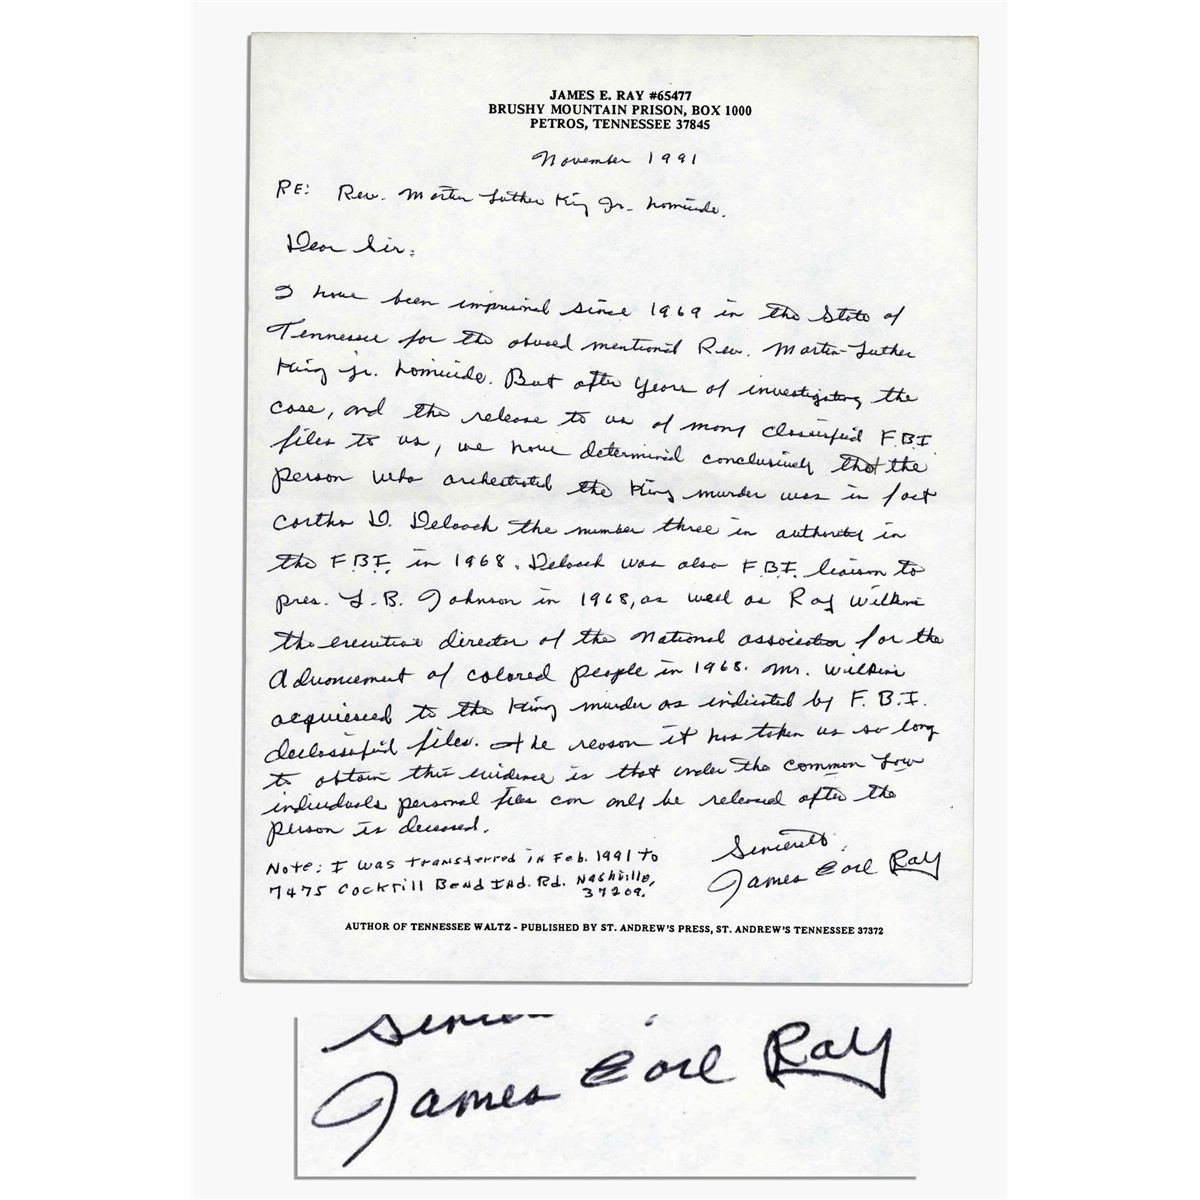 JAMES E. RAY #65477
BRUSHY MOUNTAIN PRISON, BOX 1000
PETROS, TENNESSEE 37845
November 1991
RE: Rev. Martin Luther King Jr. homicide.
Dear Sir:
I have been imprisoned since 1969 in the State of
Tennessee for the above mentioned Rev. Martin Luther
King jr. homicide. But after years of investigating the
case, and the release to us of many classified F.B.I.
files to us, we have determined conclusively that the
person who orchestrated the King murder was in fact
Cartha D. Deloach the number three in authority in
the F.B.I. in 1968. Deloach was also F.B.I. liaison to
pres. L.B. Johnson in 1968, as well as Roy Wilkins
the executive director of the National association for the
Advancement of colored people in 1968. Mr. Wilkins
acquiesced to the King murder as indicated by F.B.I.
declassified files. The reason it has taken us so long
to obtain this evidence is that under the common law
individuals personal files can only be released after the
person is deceased.
Sincerely,
James Earl Ray
Note: I was transferred in Feb. 1991 to
7475 Cockrill Bend Ind. Rd. Nashville,
37209.
AUTHOR OF TENNESSEE WALTZ - PUBLISHED BY ST. ANDREW'S PRESS, ST. ANDREW'S TENNESSEE 37372
James Earl Ray